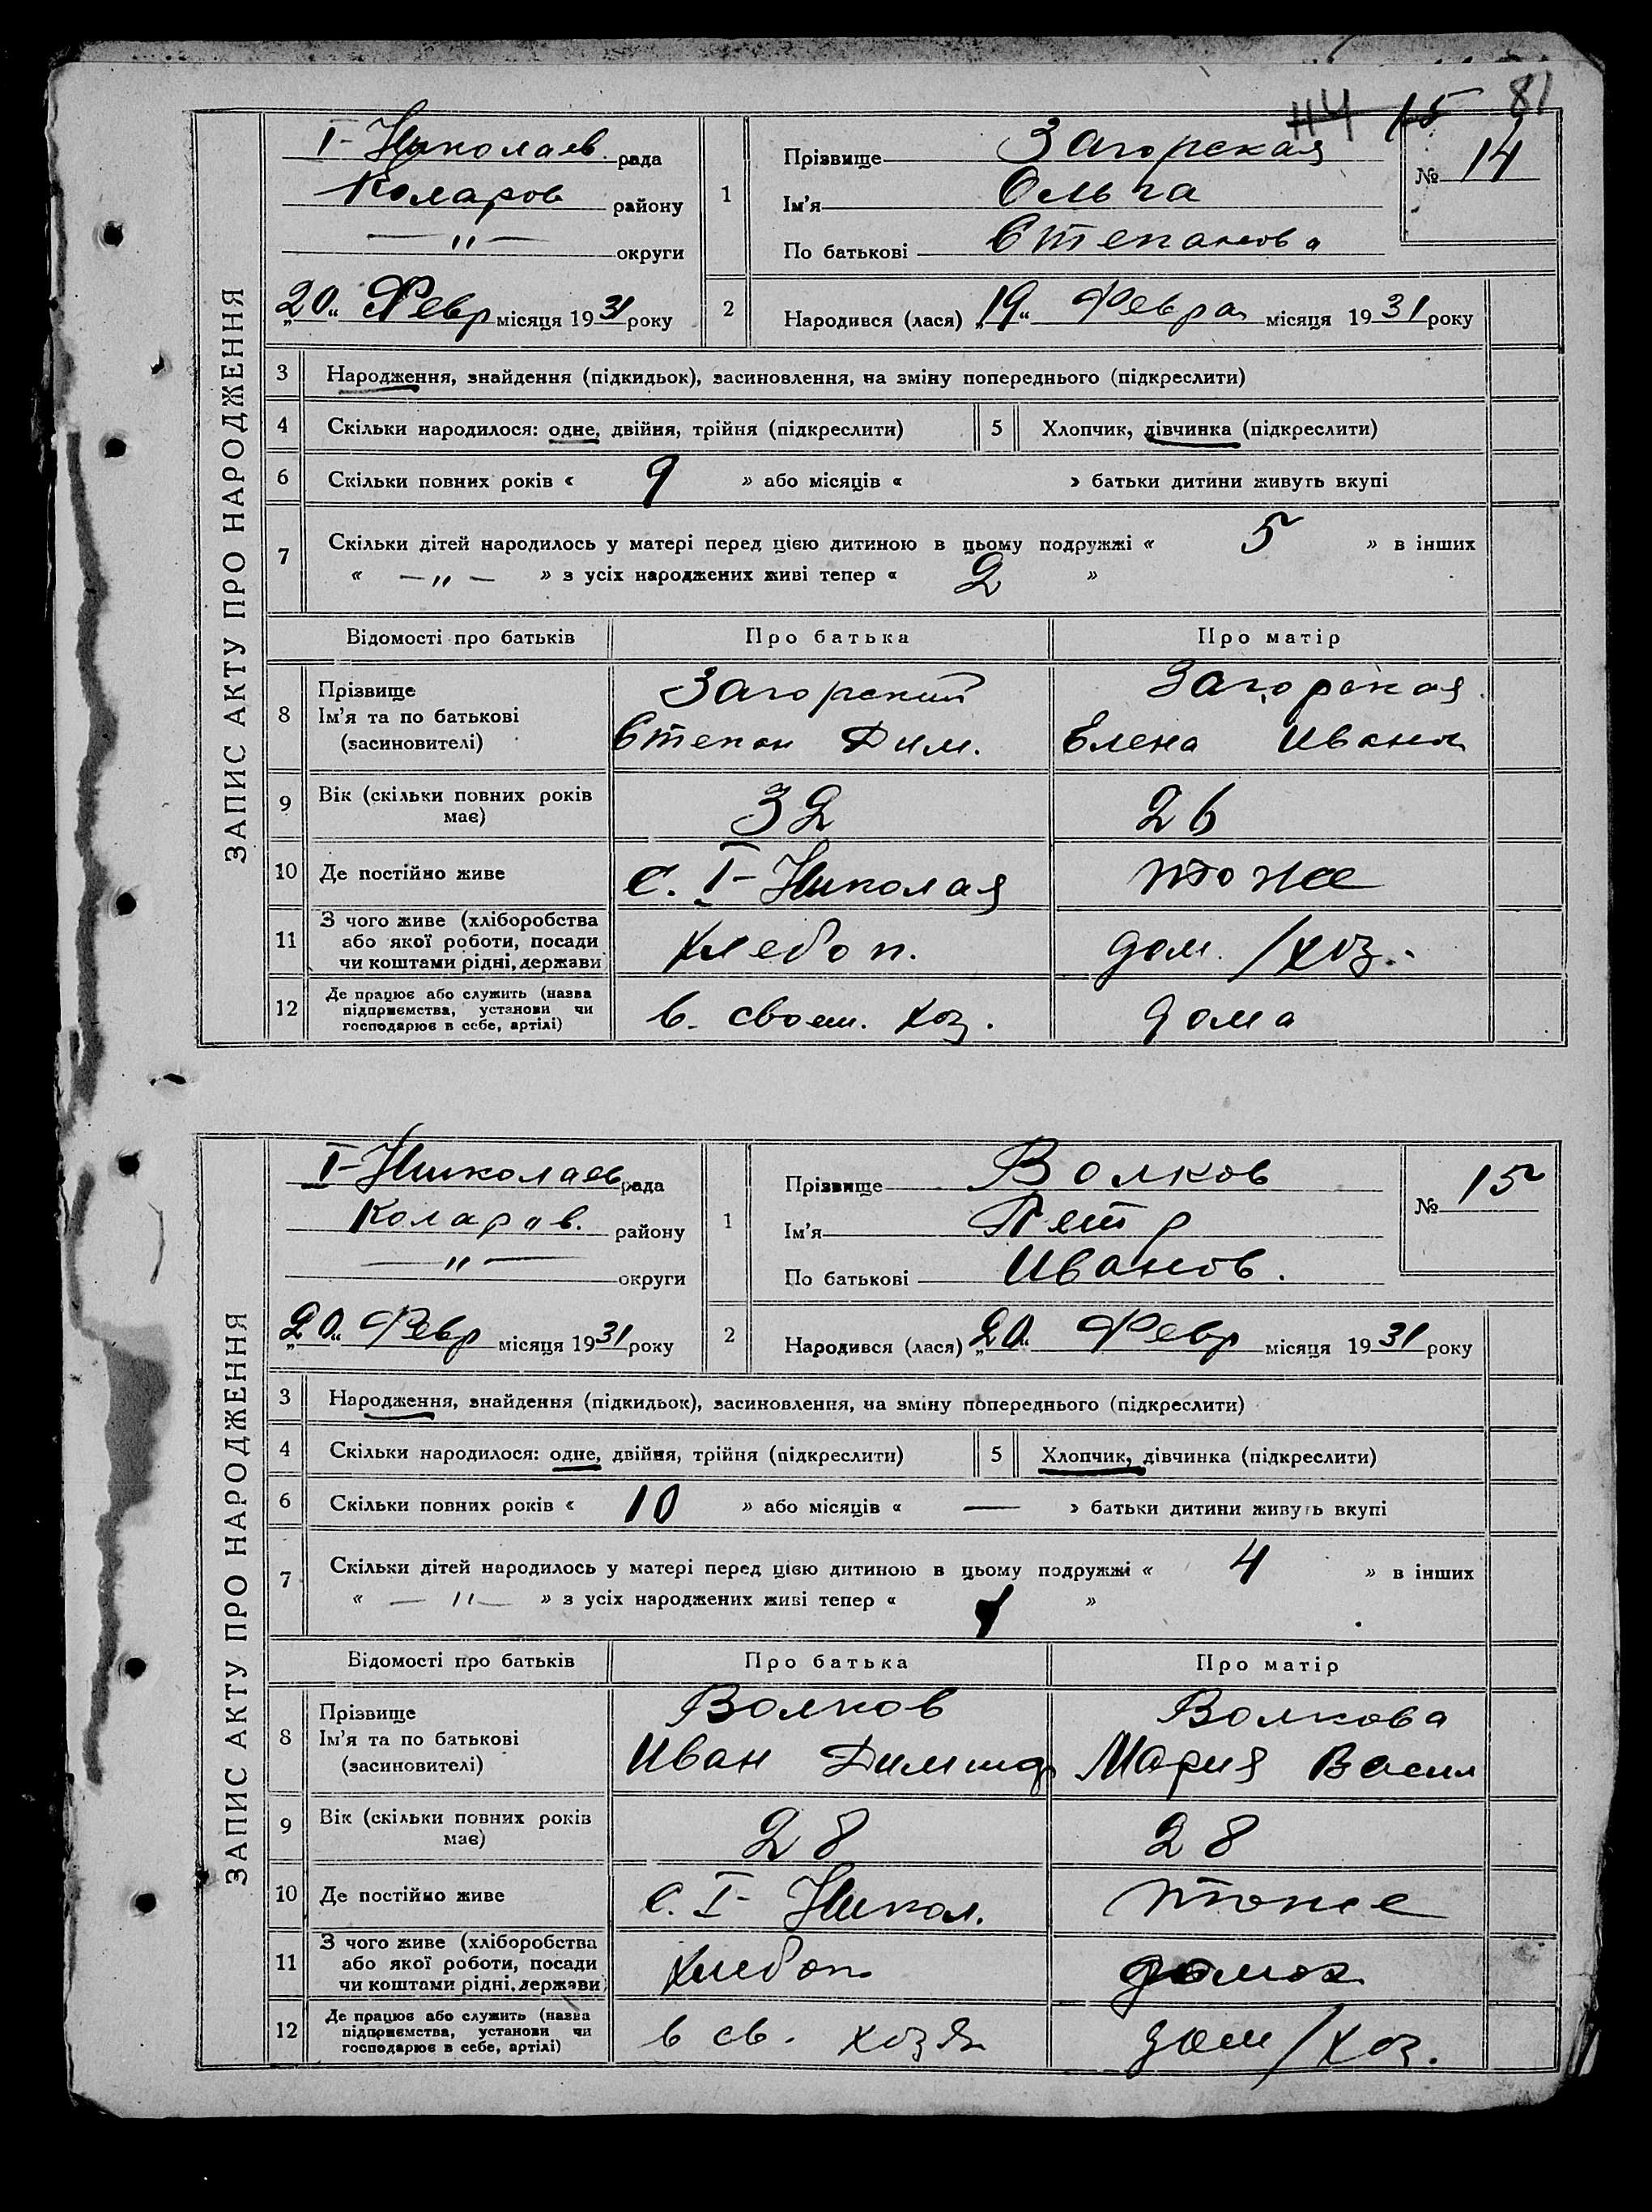 44 15 81
ЗАПИС АКТУ ПРО НАРОДЖЕННЯ
I-Николаев. рада
Коларов району
— " — округи
„20" Февр місяця 1931 року
1
Прізвище Загорская
Ім'я Ольга
По батькові Степанова
№ 14
2
Народився (лася) „19" Февра місяця 1931 року
3 Народження, знайдення (підкидьок), засиновлення, на зміну попереднього (підкреслити)
4 Скільки народилося: одне, двійня, трійня (підкреслити) 5 Хлопчик, дівчинка (підкреслити)
6 Скільки повних років « 9 » або місяців « » батьки дитини живуть вкупі
7 Скільки дітей народилось у матері перед цією дитиною в цьому подружжі « 5 » в інших
« — " — » з усіх народжених живі тепер « 2 »
Відомості про батьків Про батька Про матір
8 Прізвище Загорский Загорская
Ім'я та по батькові Степан Дим. Елена Иван
(засиновителі)
9 Вік (скільки повних років має) 32 26
10 Де постійно живе с. I-Николая тоже
11 З чого живе (хліборобства або якої роботи, посади чи коштами рідні, держави) хлебоп. дом. / хоз.
12 Де працює або служить (назва підприємства, установи чи господарює в себе, артілі) в. своем. хоз. дома
ЗАПИС АКТУ ПРО НАРОДЖЕННЯ
I-Николаев рада
Коларов. району
— " — округи
„20" Февр місяця 1931 року
1
Прізвище Волков
Ім'я Петр
По батькові Иванов.
№ 15
2
Народився (лася) „20" Февр місяця 1931 року
3 Народження, знайдення (підкидьок), засиновлення, на зміну попереднього (підкреслити)
4 Скільки народилося: одне, двійня, трійня (підкреслити) 5 Хлопчик, дівчинка (підкреслити)
6 Скільки повних років « 10 » або місяців « — » батьки дитини живуть вкупі
7 Скільки дітей народилось у матері перед цією дитиною в цьому подружжі « 4 » в інших
« — " — » з усіх народжених живі тепер « »
Відомості про батьків Про батька Про матір
8 Прізвище Волков Волкова
Ім'я та по батькові Иван Димитр Мария Васил
(засиновителі)
9 Вік (скільки повних років має) 28 28
10 Де постійно живе с. I- Никол. тоже
11 З чого живе (хліборобства або якої роботи, посади чи коштами рідні, держави) хлебоп
12 Де працює або служить (назва підприємства, установи чи господарює в себе, артілі) в св. хозя дом / хоз.